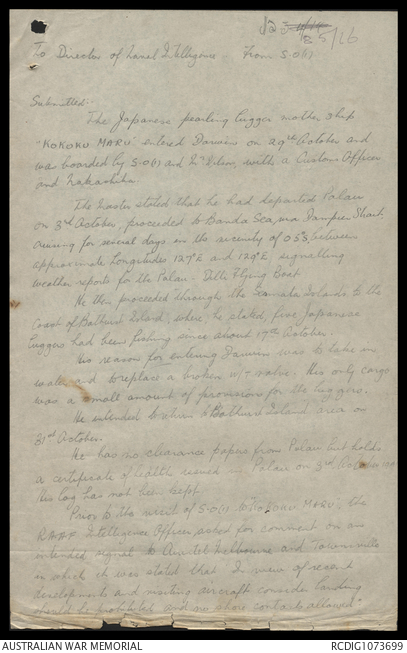 85/26
To Director of Naval Intelligence - From S.O.(I)
Submitted:-
The Japanese pearling lugger mother ship
"KOKOKU MARU" entered Darwin on 29th October and
was boarded by S.O.(I) and with a Customs Officer
and Nakashiba.
The master stated that he had departed Palau
on 3rd October, proceeded to Banda Sea via Dampier Strait,
cruising for several days in the vicinity of 05°S, between
approximate longitudes 127°E and 129°E signalling
weather reports for the Palau - Dilli Flying Boat.
He then proceeded through the Islands to the
coast of Bathurst Island, where he stated, five Japanese
luggers had been fishing since about 17th October.
His reason for entering Darwin was to take in
water and to replace a broken W/T valve. His only cargo
was a small amount of provisions for the luggers.
He intended to return to Bathurst Island area on
31st October.
He has no clearance papers from Palau but holds
a certificate of health issued in Palau on 3rd October
His log has not been kept.
Prior to the visit of S.O.(I) to "KOKOKU MARU", the
RAAF Intelligence Officer asked for comment on an
intended signal to Melbourne and Townsville
in which it was stated that "In view of recent
developments and visiting aircraft consider landing
should be prohibited and no shore contacts allowed"
AUSTRALIAN WAR MEMORIAL
RCDIG1073699